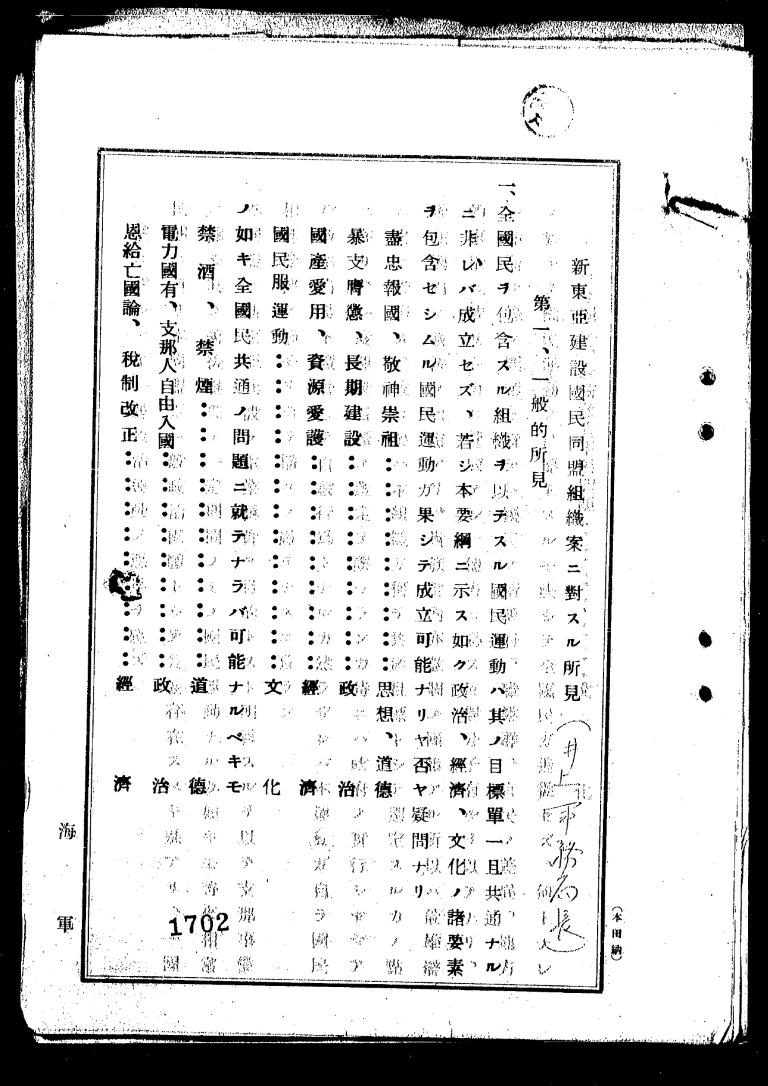 新東亞建設國民同盟組織案ニ對スル所見（井上軍務局長）
第一、一般的所見
一、全國民ヲ包含スル組織ヲ以テスル國民運動ハ其ノ目標單一且共通ナル
ニ非レバ成立セズ、若シ本要綱ニ示ス如ク政治、經濟、文化ノ諸要素
ヲ包含セシムル國民運動ガ果シテ成立可能ナリヤ否ヤ疑問ナリ
盡忠報國、敬神崇祖………思想、道德
暴支膺懲、長期建設………政治
國產愛用、資源愛護………經濟
國民服運動………文化
ノ如キ全國民共通ノ問題ニ就テナラバ可能ナルベキモ
禁酒、禁煙………道德
電力國有、支那人自由入國………政治
恩給亡國論、稅制改正………經濟
海軍
（本田納）
1702